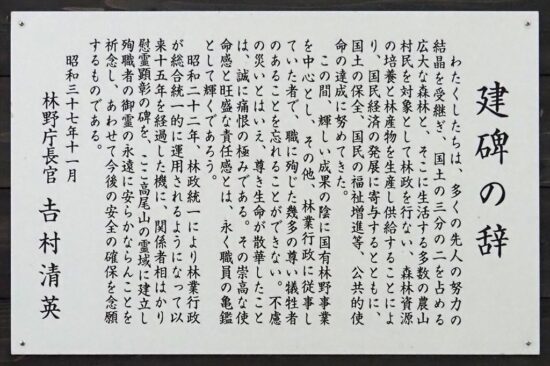 建碑の辞
わたくしたちは、多くの先人の努力の
結晶を受継ぎ、国土の三分の二を占める
広大な森林と、そこに生活する多数の農山
村民を対象として林政を行ない、森林資源
の培養と林産物を生産し供給することによ
り、国民経済の発展に寄与するとともに、
国土の保全、国民の福祉増進等、公共的使
命の達成に努めてきた。
この間、輝しい成果の陰に国有林野事業
を中心とし、その他、林業行政に従事し
ていた者で、職に殉じた幾多の尊い犠牲者
のあることを忘れることができない。不慮
の災いとはいえ、尊き生命が散華したこと
は、誠に痛恨の極みである。その崇高な使
命感と旺盛な責任感とは、永く職員の亀鑑
として輝くであろう。
昭和二十二年、林政統一により林業行政
が総合統一的に運用されるようになって以
来十五年を経過した機に、関係者相はかり
慰霊顕彰の碑を、ここ高尾山の霊域に建立し
殉職者の御霊の永遠に安らかならんことを
祈念し、あわせて今後の安全の確保を念願
するものである。
昭和三十七年十一月
林野庁長官 吉村清英